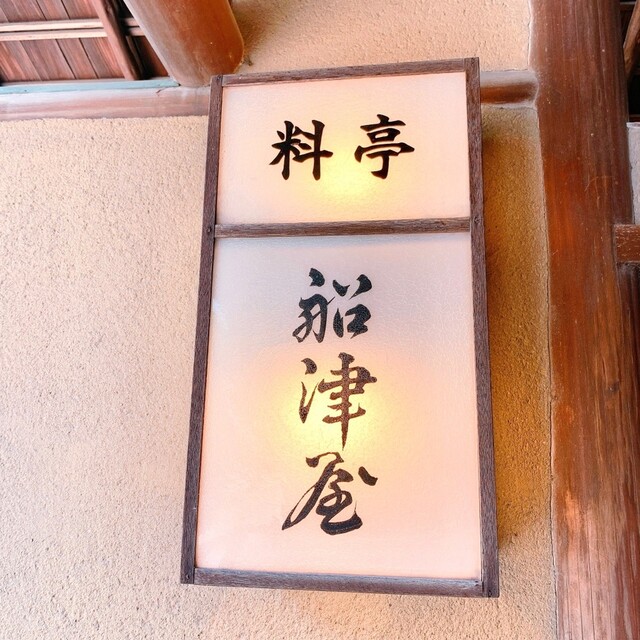 料亭
船津屋